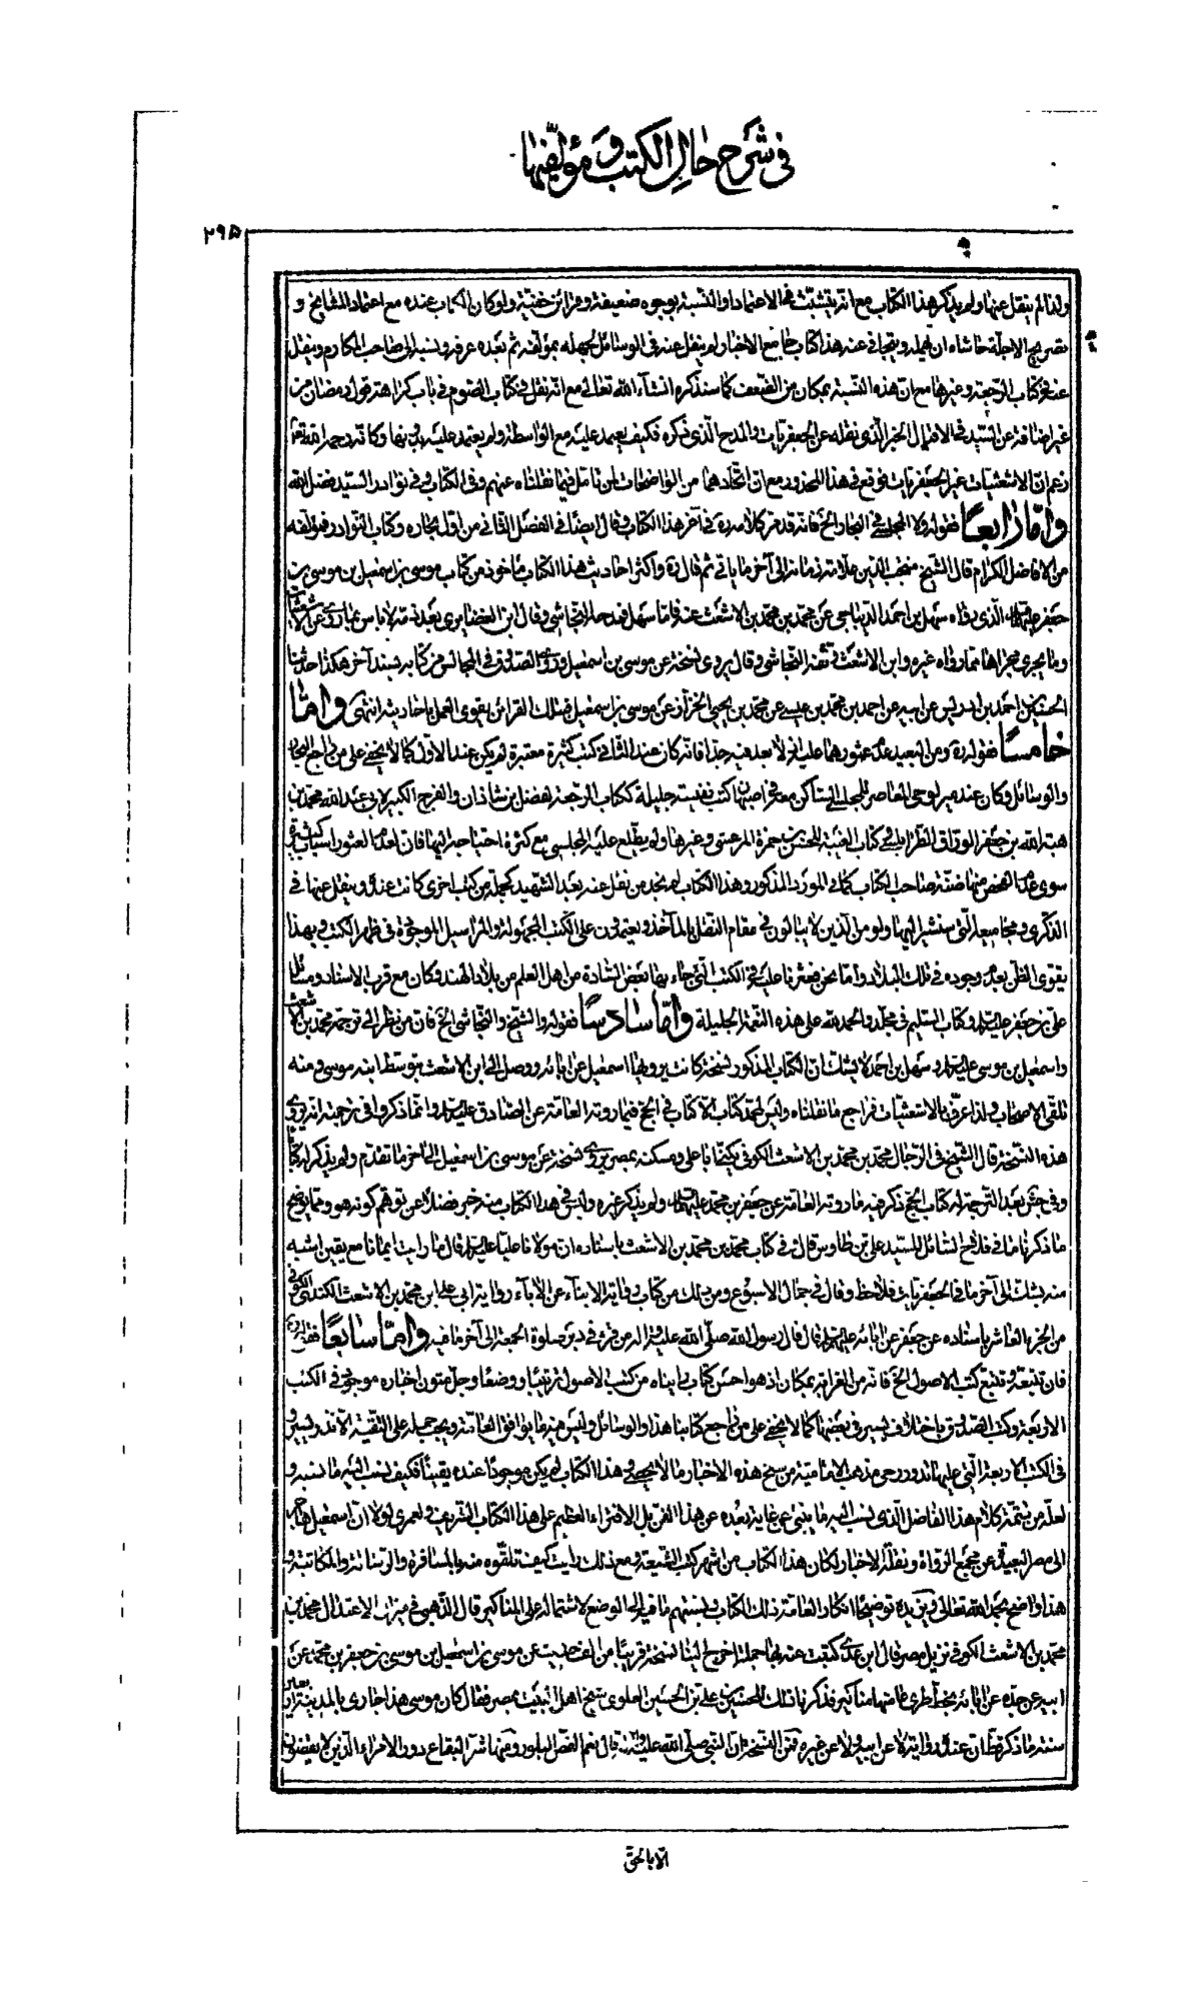 في شرح حال الكتب ومؤلفيها
٢٩٥
ولذا لم ينقل عنها ولم يذكر هذا الكتاب مع انه يتشبث في الاعتماد او النسبة بوجوه ضعيفة وقرائن خفية ولو كان الكتاب عنده مع اعتماد المشايخ و
تصريح الاجلة حاشاه ان يهمله ويتجافى عنه هذا كتاب جامع الاخبار لم ينقل عنه في الوسائل لجهله بمؤلفه ثم بعده عرفه ونسبه الى صاحب المكارم وينقل
عنه في كتاب الرجعة وغيرها مع ان هذه النسبة بمكان من الضعف كما سنذكره انشاء الله تعالى مع انه نقل في كتاب الصوم في باب كراهة قول رمضان من
غير اضافة عن السيد في الاقبال الخبر الذي نقله عن الجعفريات والمدح الذي ذكره فكيف يعتمد عليه مع الواسطة ولم يعتمد عليه بدونها وكانه رحمه الله تعالى
زعم ان الاشعثيات غير الجعفريات فوقع في هذا المحذور مع ان اتحادهما من الواضحات لمن تامل فيما نقلناه عنهم وفي الكتاب وفي نوادر السيد فضل الله
واما رابعا فقوله ولا المجلسي في البحار الخ فانه قد مر كلامه ره في آخر هذا الكتاب وقال ايضا في الفصل الثاني من اول بحاره وكتاب النوادر فمؤلفه
من الافاضل الكرام قال الشيخ منتجب الدين علامة زمانه الى آخر ما ياتي ثم قال ره واكثر احاديث هذا الكتاب ماخوذ من كتاب موسى بن اسمعيل بن موسى بن
جعفر عليهما السلام الذي رواه سهل بن احمد الديباجي عن محمد بن محمد بن الاشعث عنه فاما سهل فمدحه النجاشي وقال ابن الغضايري بعد ذمه لا باس بما روى عن الاشعثيات
وما يجري مجراها مما رواه غيره وابن الاشعث وثقه النجاشي وقال يروي نسخة عن موسى بن اسمعيل وروى الصدوق في المجالس من كتابه بسند آخر هكذا حدثنا
الحسين بن احمد بن ادريس عن ابيه عن احمد بن محمد بن عيسى عن محمد بن يحيى الخزاز عن موسى بن اسمعيل فبتلك القرائن يقوى العمل باحاديثه انتهى واما
خامسا فقوله ره ومن البعيد عدم عثورهما عليه الخ لا بعد فيه جدا فانه كان عند الثاني كتب كثيرة معتبرة لم يكن عند الاول كما لا يخفى على من راجع البحار
والوسائل وكان عند مير لوحي المعاصر للمجلسي الساكن معه في اصبهان كتب نفيسة جليلة ككتاب الرجعة لفضل بن شاذان والفرج الكبير لابي عبد الله محمد بن
هبة الله بن جعفر الوراق الطرابلسي وكتاب الغيبة للحسن بن حمزة المرعشي وغيرها ولم يطلع عليه المجلسي مع كثرة احتياجه اليها فان لعدم العثور اسباب كثيرة
سوى عدم الفحص منها ضنة صاحب الكتاب كما في المورد المذكور وهذا الكتاب لم نجد من نقل عنه بعد الشهيد كجملة من كتب اخرى كانت عنده وينقل عنها في
الذكرى ومجاميعه التي سنشير اليها ولو من الذين لا يبالون في مقام النقل بالمآخذ ويعتمدون على الكتب المجهولة والمراسيل الموجودة في ظهر الكتب وبهذا
يقوى الظن بعدم وجوده في تلك البلاد واما نحن فعثرنا عليه في الكتب التي جاء بها بعض السادة من اهل العلم من بلاد الهند وكان مع قرب الاسناد ومسائل
علي بن جعفر عليه السلام وكتاب السليم في مجلد والحمد لله على هذه النعمة الجليلة واما سادسا فقوله والشيخ والنجاشي الخ فان من نظر الى ترجمة محمد بن الاشعث
واسمعيل بن موسى عليه السلام وسهل بن احمد لا يشك ان الكتاب المذكور نسخة كانت يرويها اسمعيل عن آبائه ووصل الى ابن الاشعث بتوسط ابنه موسى ومنه
تلقى الاصحاب ولذا عرف بالاشعثيات فراجع ما نقلناه وليس لمحمد كتاب الا كتاب في الحج فيما روته العامة عن الصادق عليه السلام وانما ذكروا في ترجمته انه يروي
هذه النسخة قال الشيخ في الرجال محمد بن محمد بن الاشعث الكوفي يكنى ابا علي ومسكنه بمصر يروي نسخة عن موسى بن اسمعيل الى آخر ما تقدم ولم يذكر له كتابا
وفي جش بعد الترجمة له كتاب الحج ذكر فيه ما روته العامة عن جعفر بن محمد عليهما السلام ولم يذكر غيره وليس في هذا الكتاب منه خبر فضلا عن توهم كونه هو ومما يوضح
ما ذكرنا ما في فلاح السائل للسيد علي بن طاوس قال في كتاب محمد بن محمد بن الاشعث باسناده ان مولانا عليا عليه السلام قال ما رايت ايمانا مع يقين اشبه
منه بشك الى آخر ما في الجعفريات فلاحظ وقال في جمال الاسبوع ومن ذلك من كتاب رواية الابناء عن الآباء رواية ابي علي ابن محمد بن الاشعث الكندي الكوفي
من الجزء العاشر باسناده عن جعفر عن آبائه عليهم السلام قال قال رسول الله صلى الله عليه وآله من قرء في دبر صلوة الجمعة الى آخر ما فيه واما سابعا فقوله ره
فان تتبعه وتتبع كتب الاصول الخ فانه من الغرابة بمكان اذ هو احسن كتاب راينا من كتب الاصول ترتيبا ووضعا وجل متون اخباره موجود في الكتب
الاربعة وكتب الصدوق باختلاف يسير في بعضها كما لا يخفى على من راجع كتابنا هذا والوسائل وليس فيه ما يوافق العامة ويجب حمله على التقية الا نذر يسير و
في الكتب الاربعة التي عليها تدور رحى مذهب الامامية من سنخ هذه الاخبار ما لا يحصى وهذا الكتاب لم يكن موجودا عنده يقينا فكيف نسب اليه ما نسبه و
لعله من تتمة كلام هذا الفاضل الذي نسب اليه ما ينبئ عن غاية بعده عن هذا الفن بل الافتراء العظيم على هذا الكتاب الشريف ولعمري لولا ان اسمعيل هاجر
الى مصر البعيد عن مجمع الرواة ونقلة الاخبار لكان هذا الكتاب من اشهر كتب الشيعة ومع ذلك رايت كيف تلقوه منه بالمسافرة والرسالة والمكاتبة و
هذا واضح بحمد الله تعالى ويزيده توضيحا انكار العامة ذلك الكتاب ونسبتهم ما فيه الى الوضع لاشتماله على المناكير قال الذهبي في ميزان الاعتدال محمد بن
محمد بن الاشعث الكوفي نزيل مصر قال ابن عدي كتبت عنه بها جملة اخرج الينا نسخة قريبا من الف حديث عن موسى بن اسمعيل بن موسى بن جعفر بن محمد عن
ابيه عن جده عن آبائه بخط طري عامتها مناكير فذكرنا ذلك للحسين بن علي بن الحسين العلوي شيخ اهل البيت بمصر فقال كان موسى هذا جاري بالمدينة اربعين
سنة ما ذكر قط ان عنده رواية لا عن ابيه ولا عن غيره فمن النسخة ان النبي صلى الله عليه وآله قال نعم الفص البلور ومنها شر البقاع دور الامراء الذين لا يقضون
الا بالحق